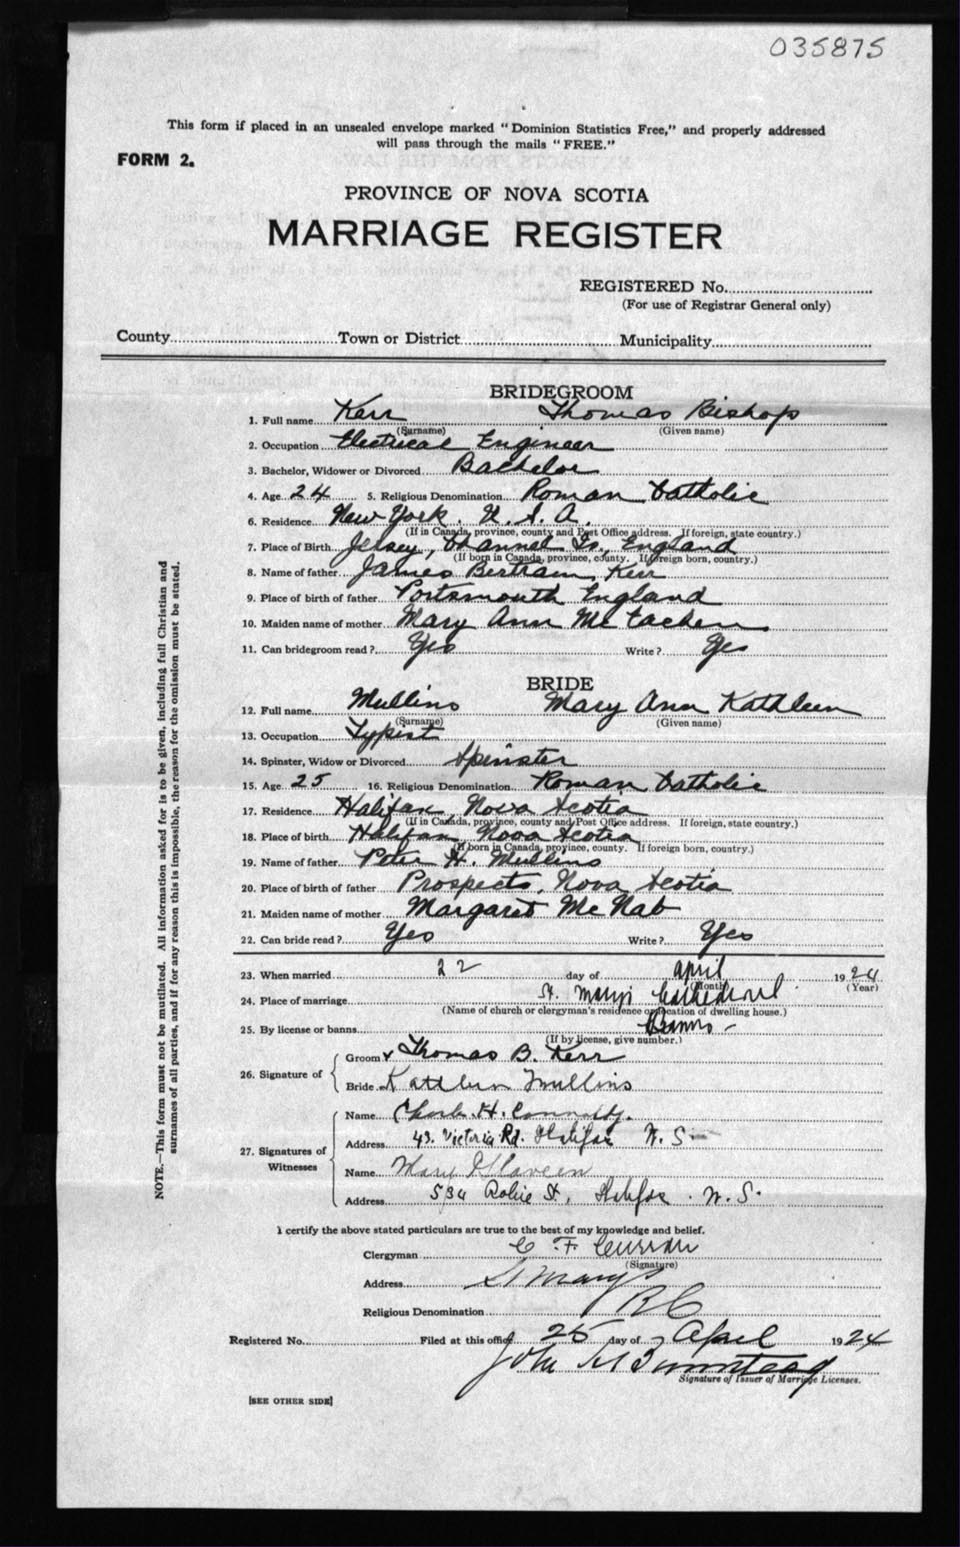 035875
This form if placed in an unsealed envelope marked "Dominion Statistics Free," and properly addressed
will pass through the mails "FREE."
FORM 2.
PROVINCE OF NOVA SCOTIA
MARRIAGE REGISTER
REGISTERED No.
(For use of Registrar General only)
County Town or District Municipality
BRIDEGROOM
1. Full name Kerr Thomas Bishop
(Surname) (Given name)
2. Occupation Electrical Engineer
3. Bachelor, Widower or Divorced Bachelor
4. Age 24 5. Religious Denomination Roman Catholic
6. Residence New York. U.S.A.
(If in Canada, province, county and Post Office address. If foreign, state country.)
7. Place of Birth Jersey, Channel Is., England
(If born in Canada, province, county. If foreign born, country.)
8. Name of father James Bertram Kerr
9. Place of birth of father Portsmouth England
10. Maiden name of mother Mary Ann McEachern
11. Can bridegroom read? Yes Write? Yes
BRIDE
12. Full name Mullins Mary Ann Kathleen
(Surname) (Given name)
13. Occupation Typist
14. Spinster, Widow or Divorced Spinster
15. Age 25 16. Religious Denomination Roman Catholic
17. Residence Halifax, Nova Scotia
(If in Canada, province, county and Post Office address. If foreign, state country.)
18. Place of birth Halifax, Nova Scotia
(If born in Canada, province, county. If foreign born, country.)
19. Name of father Peter H. Mullins
20. Place of birth of father Prospects, Nova Scotia
21. Maiden name of mother Margaret McNab
22. Can bride read? Yes Write? Yes
23. When married 22 day of April 1924
(Month) (Year)
24. Place of marriage St. Mary's Cathedral
(Name of church or clergyman's residence or location of dwelling house.)
25. By license or banns Banns -
(If by license, give number.)
26. Signature of
Groom x Thomas B. Kerr
Bride Kathleen Mullins
27. Signatures of Witnesses
Name Charles H. Connolly.
Address 43. Victoria Rd. Halifax N.S.
Name Mary Glaveen
Address 534 Robie St, Halifax. N.S.
I certify the above stated particulars are true to the best of my knowledge and belief.
Clergyman C. F. Curran
(Signature)
Address St Marys
Religious Denomination RC
Registered No. Filed at this office 25 day of April 1924
John
Signature of Issuer of Marriage Licenses.
[SEE OTHER SIDE]
NOTE.—This form must not be mutilated. All information asked for is to be given, including full Christian and
surnames of all parties, and if for any reason this is impossible, the reason for the omission must be stated.